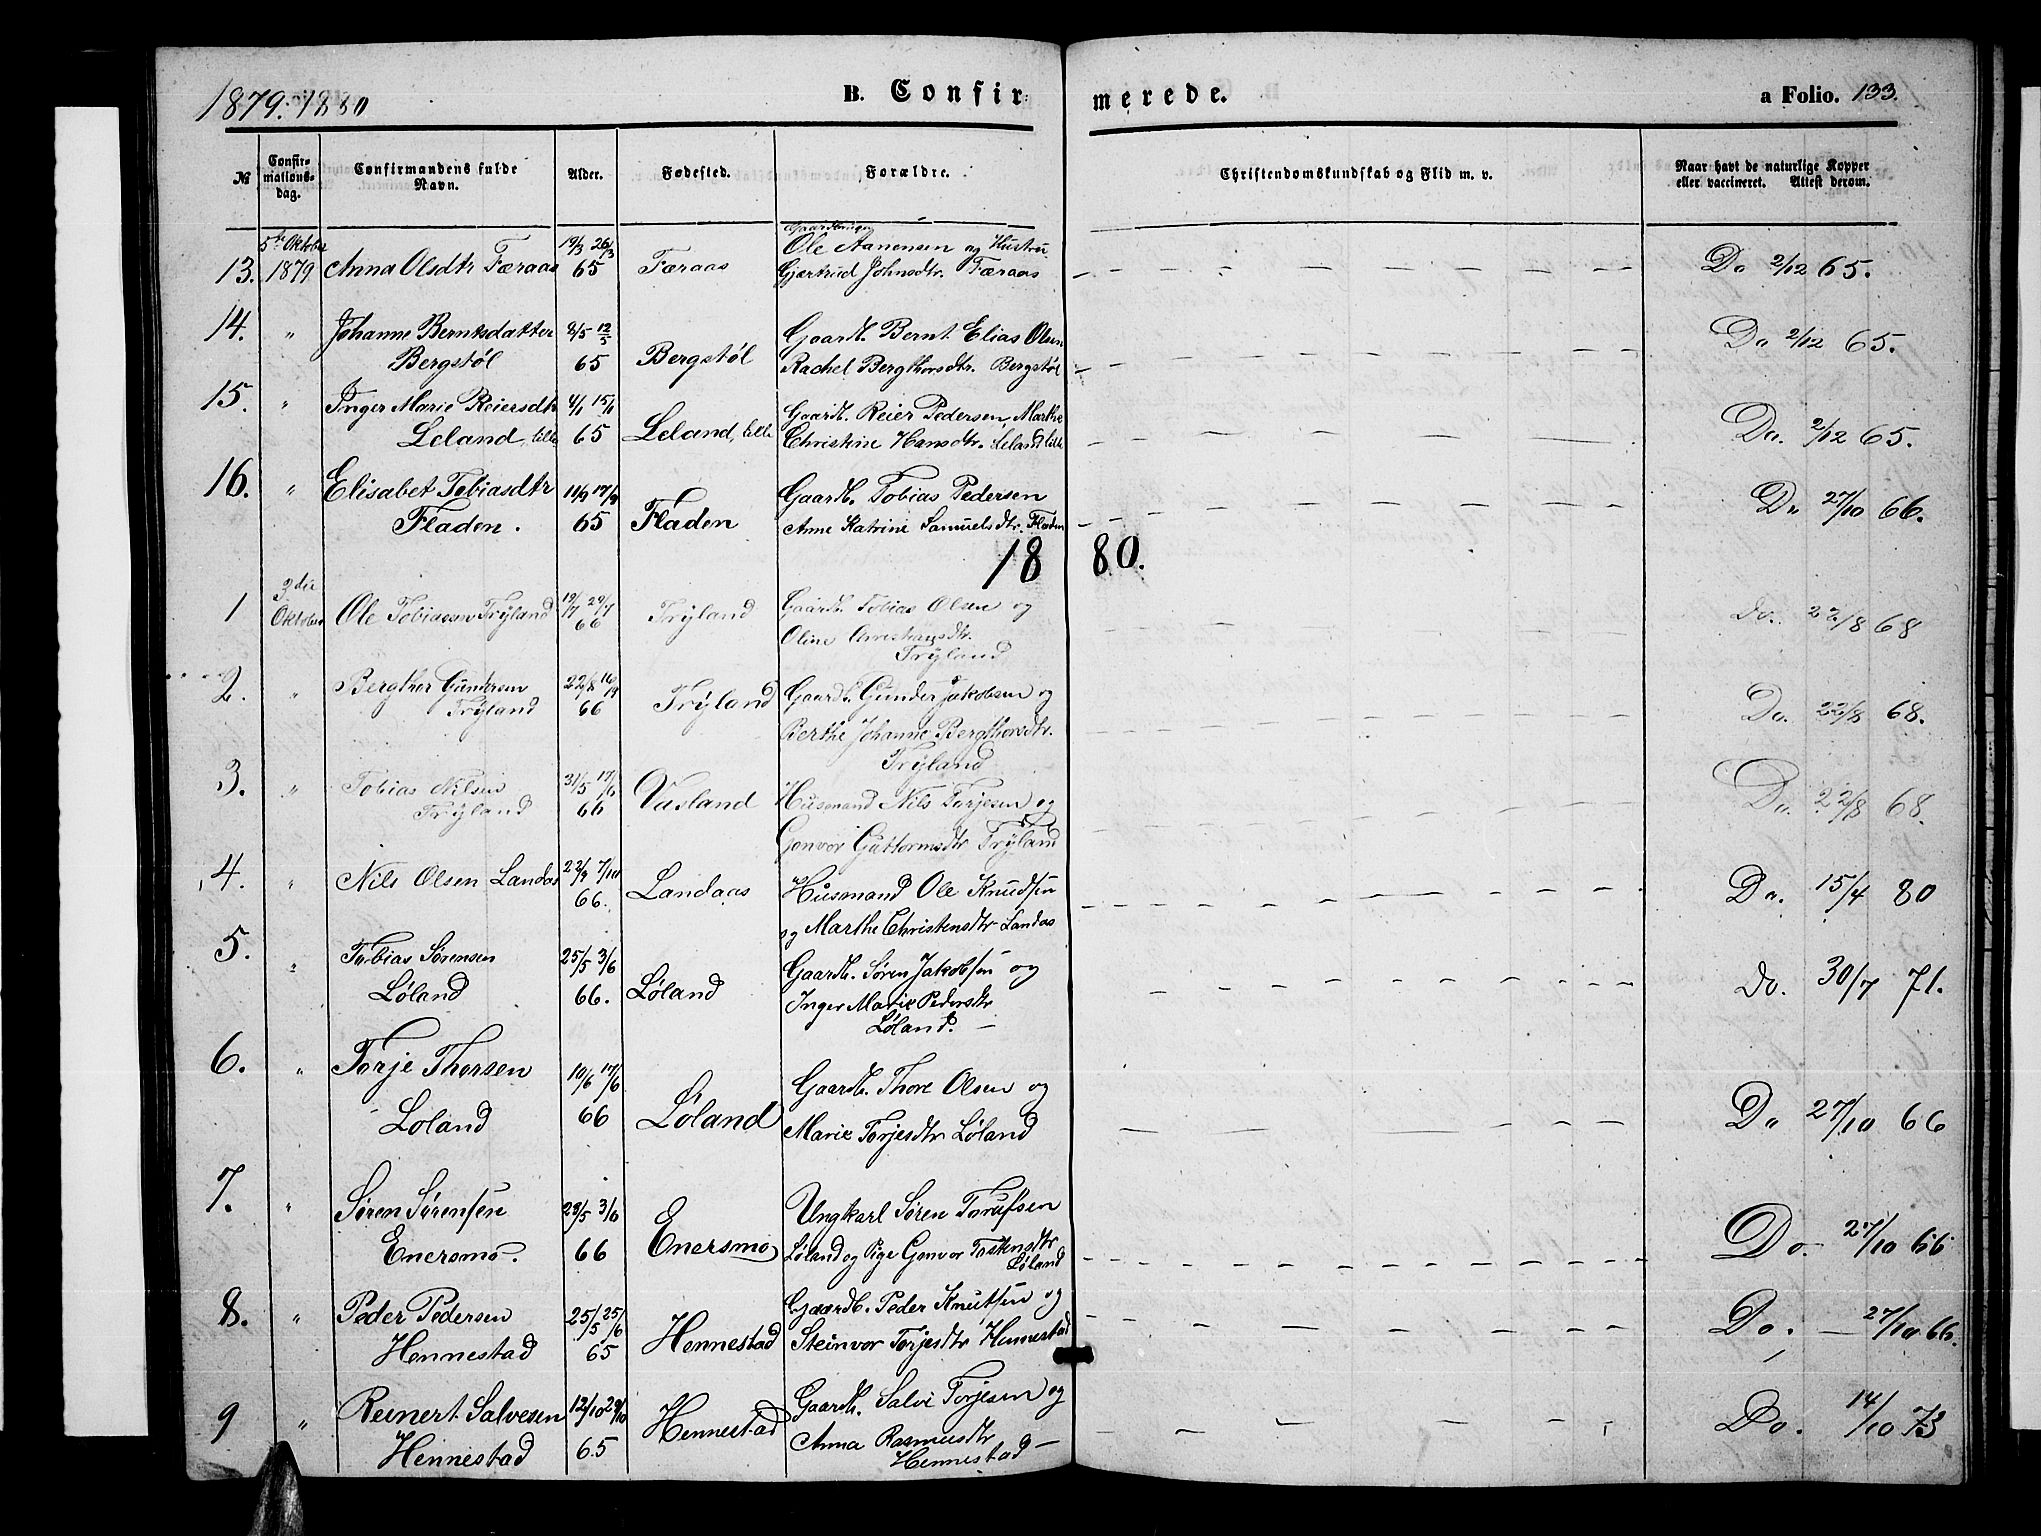 1879. 1880
B. Confirmerede.
a Folio. 133.
№
Confirmationsdag.
Confirmandens fulde Navn.
Alder.
Fødested.
Forældre.
Christendomskundskab og Flid m. v.
Naar havt de naturlige Kopper eller vaccineret. Attest derom.
13. 5te Oktober 1879 Anna Olsdtr Færaas 19/3 26/3 65 Færaas Ole Aanensen og Hustru Gjertrud Johnsdtr. Færaas Do 2/12 65.
14. " Johanne Berntsdatter Bergstøl 8/5 12/5 65 Bergstøl Gaardb. Bernt Elias Olsen Rachel Bergthorsdtr. Bergstøl Do 2/12 65.
15. " Inger Marie Reiersdtr Leland, lille 4/1 15/1 65 Leland, lille Gaardb. Reier Pedersen, Marthe Christine Hansdtr. Leland lille Do. 2/12 65.
16. " Elisabet Tobiasdtr Fladen. 11/9 17/9 65 Fladen Gaardb. Tobias Pedersen Anne Katrine Samuelsdtr. Fladen Do 27/10 66.
1880.
1 3die Oktober Ole Tobiassen Trÿland 19/7 29/7 66 Trÿland Gaardb. Tobias Olsen og Oline Christensdtr. Trÿland Do. 22/8 68
2. " Bergthor Gundersen Trÿland 22/8 16/9 66 Trÿland Gaardb. Gunder Jakobsen og Berthe Johanne Bergthorsdtr. Trÿland Do. 22/8 68.
3. " Tobias Nilsen Trÿland 31/5 17/6 66 Vasland Husmand Nils Torjesen og Gonvor Guttormsdtr Trÿland Do. 22/8 68.
4. " Nils Olsen Landas 22/9 7/10 66. Landaas Husmand Ole Knudsen og Marthe Christensdtr Landas Do. 15/4 80
5. " Tobias Sørensen Løland 25/5 3/6 66. Løland Gaardb. Søren Jakobsen og Inger Marie Pedersdtr Løland. — Do. 30/7 71.
6. " Torje Thorsen Løland 10/6 17/6 66 Løland Gaardb. Thore Olsen og Marie Torjesdtr Løland Do 27/10 66
7. " Søren Sørensen Enersmo. 23/5 3/6 66 Enersmo Ungkarl Søren Løland og Pige Gonvor Tostensdtr Løland Do. 27/10 66
8. " Peder Pedersen Hennestad 25/5 25/6 65 Hennestad Gaardb. Peder Knutsen og Steinvor Torjesdtr Hennestad Do. — 27/10 66.
9 " Reinert Salvesen Hennestad 12/10 29/10 65 Hennestad Gaardb. Salve Torjesen og Anna Rasmusdtr Hennestad — Do. 14/10 73